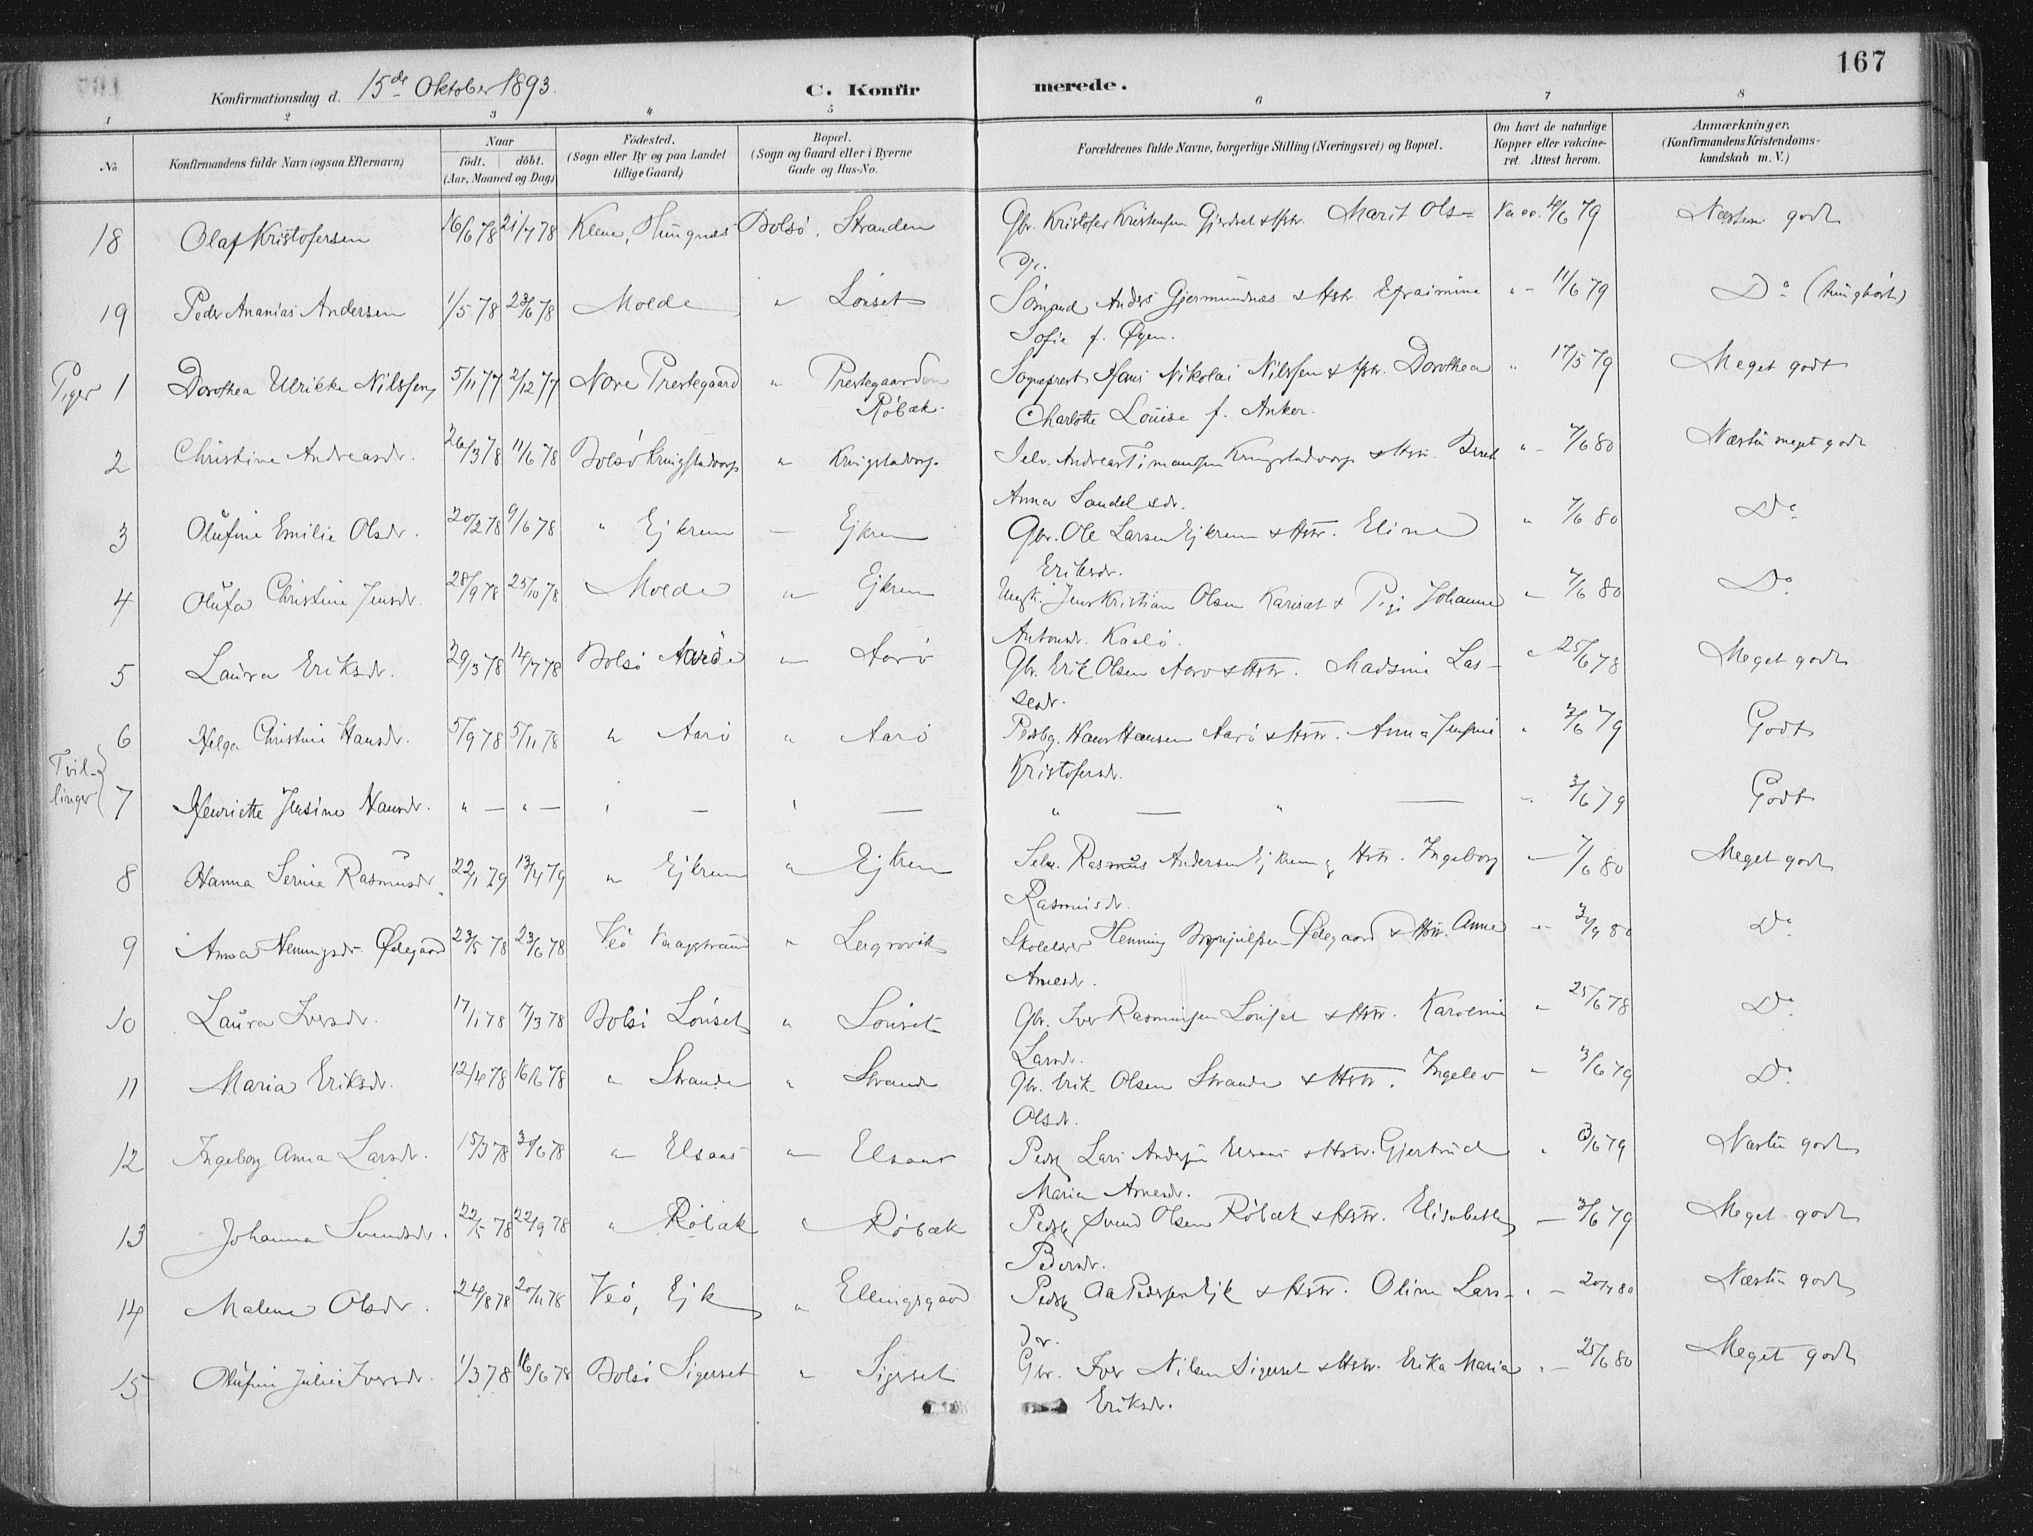 167
Konfirmationsdag d. 15de Oktober 1893.
C. Konfirmerede.
1 2 3 4 5 6 7 8
No.
Konfirmandens fulde Navn (ogsaa Efternavn)
Naar
født. døbt.
(Aar, Maaned og Dag)
Fødested.
(Sogn eller By og paa Landet
tillige Gaard)
Bopæl.
(Sogn og Gaard eller i Byerne
Gade og Hus-No.
Forældrenes fulde Navne, borgerlige Stilling (Næringsvei) og Bopæl.
Om havt de naturlige
Kopper eller vakcine-
ret. Attest herom.
Anmærkninger.
(Konfirmandens Kristendoms-
kundskab m. V.)
18 Olaf Kristofersen 16/6 78 21/7 78 Bolsø. Stranden Gbr. Kristofer Gjerdset & Hstr. Marit Ols- 4/6 79 Næsten godt
dr.
19 Peder Ananias Andersen 1/5 78 23/6 78 Molde " Lønset Sømand Anders Gjermundnæs & Hstr Efraimine " 11/6 79 Do (tunghørt)
Sofie f. Øyen.
Piger 1 Dorothea Ulrikke Nilssen 5/11 77 2/12 77 Prestegaard " Prestegaarden Sogneprest Hans Nikolai Nilssen & Hstr. Dorothea " 17/5 79 Meget godt
Røbæk.
Charlotte Louise f. Anker.
2 Christine Andreasdr. 26/3 78 11/6 78 Bolsø Kringstadvorp " Kringstadvorp Selv. Andreas Kringstadvorp & Hstr. Berit " 7/6 80 Næsten meget godt
Anna Sandelsdr.
3 Olufine Emilie Olsdr. 20/2 78 9/6 78 " Ejkrem — Ejkrem Gbr. Ole Larsen Ejkrem & Hstr. Eline " 7/6 80 Do
Eriksdr.
4 Olufa Christine Jensdr. 28/9 78 25/10 78 Molde " Ejkrem Ungk. Jens Kristian Olsen & Pige Johanne " 7/6 80 Do
Antonsdr.
5 Laura Eriksdr. 29/3 78 14/7 78 Bolsø Aarøe " Aarø Gbr. Erik Olsen Aarø & Hstr. Madsine Las- " 25/6 78 Meget godt
sedr.
6 Helga Christine Hansdr. 5/9 78 5/11 78 " Aarø " Aarø Hans Hansen Aarø & Hstr. Anna " 3/6 79 Godt
Kristofersdr.
Tvil-
linger
7 Henriette Jensine Hansdr. " — " — " — " — " — " — " 3/6 79 Godt
8 Hanna Serine Rasmusdr. 22/1 79 13/4 79 " Ejkrem " Ejkrem Selv. Rasmus Andersen Ejkrem & Hstr. Ingeborg — 7/6 80 Meget godt
Rasmusdr.
9 Anna Henningsdr. Ødegaard 23/5 78 23/6 78 Veø " Lergrovik Skolelærer Henning Ødegaard & Hstr. Anne " Do
Arnesdr.
10 Laura Iversdr. 17/1 78 7/3 78 Bolsø Lønset " Lønset Gbr. Iver Rasmussen Lønset & Hstr. Karoline " 25/6 78 Do
Larsdr.
11 Maria Eriksdr. 12/4 78 16/6 78 " Strande " Strande Gbr. Erik Olsen Strande & Hstr. Ingelev " 3/6 79 Do
Olsdr.
12 Ingeborg Anna Larsdr. 15/3 78 30/6 78 " Elsaas " Elsaas Lars Andersen Elsaas & Hstr. Gjertrud " 3/6 79 Næsten godt
Maria Arnesdr.
13 Johanna Svendsdr. 22/5 78 22/9 78 " Røbæk " Røbæk Svend Olsen Røbæk & Hstr. Elisabeth — 3/6 79 Meget godt
Pedersdr.
14 Malene Olsdr. 24/8 78 20/11 78 Veø, Ejk " Ellingsgaard Pedersen Ejk & Hstr. Oline Lars- " Næsten godt
dr.
15 Olufine Julie Iversdr. 1/3 78 16/6 78 Bolsø Sigerset " Sigerset Gbr. Iver Nilsen Sigerset & Hstr. Erika Maria " — 25/6 80 Meget godt
Eriksdr.